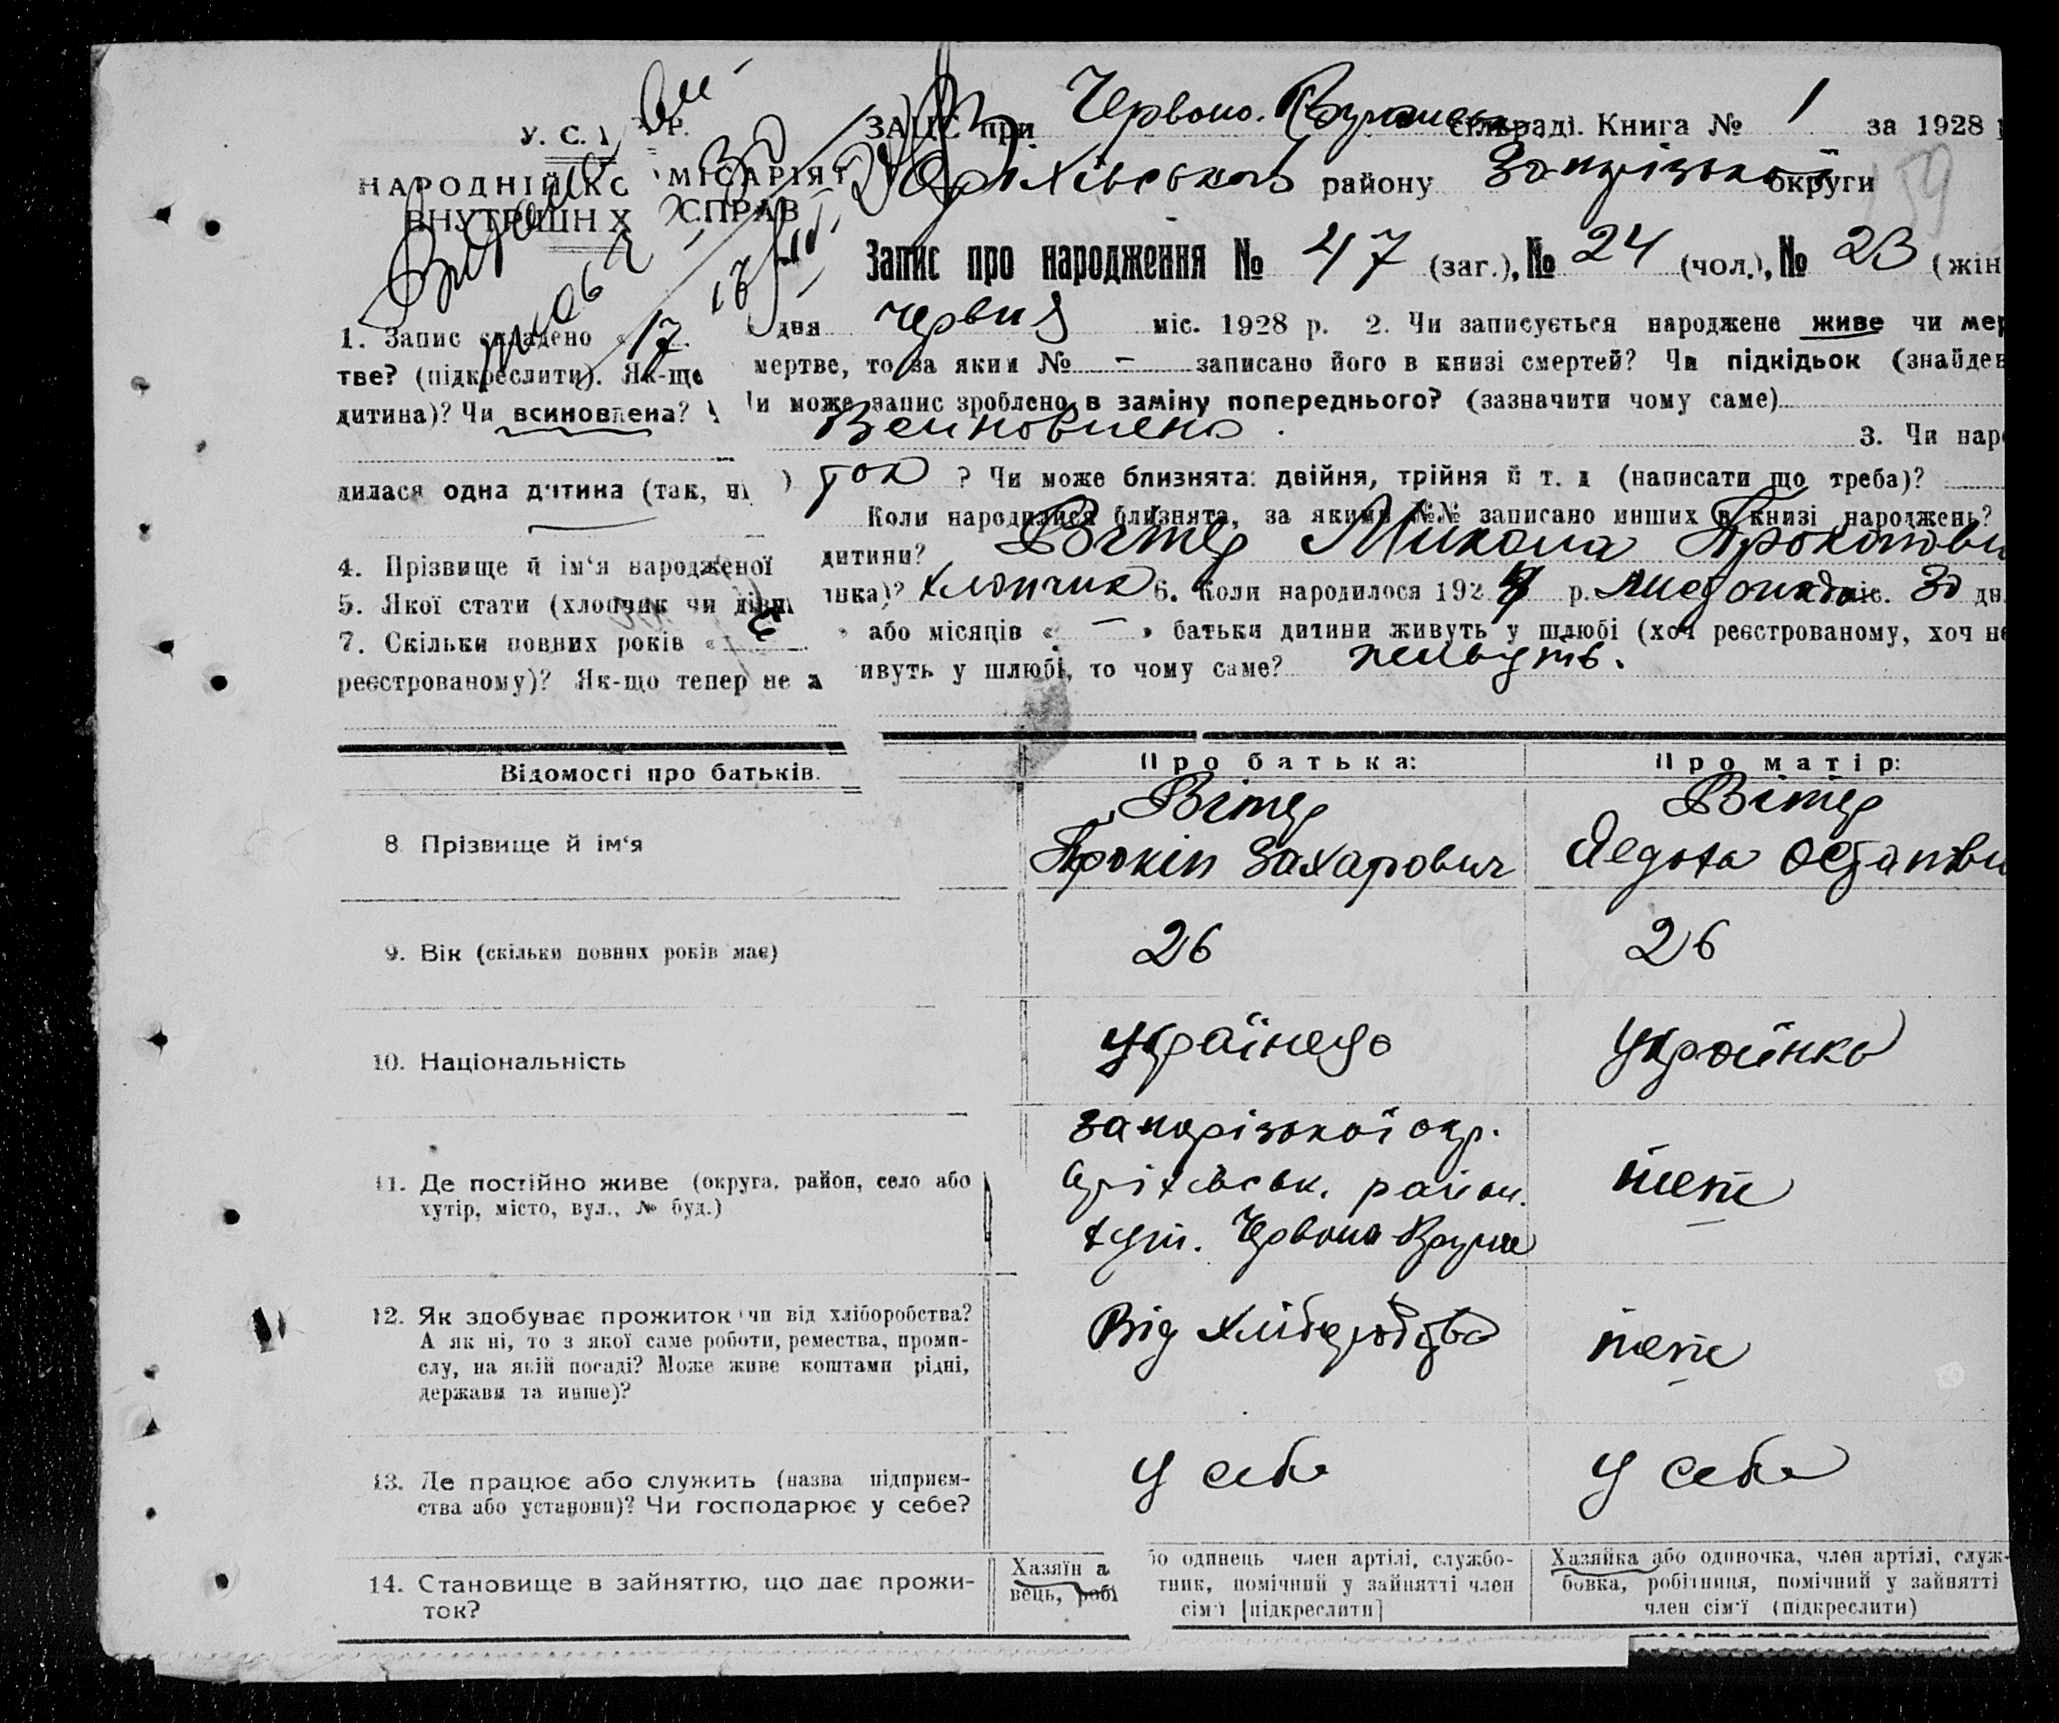 У. С. Р. Р.
НАРОДНІЙ КОМІСАРІЯТ
ВНУТРІШНІХ СПРАВ
ЗАГС при Червоно. сільраді. Книга № 1 за 1928 р
Оріхівського району Запорізької округи
159
Запис про народження № 47 (заг.), № 24 (чол.), № 23 (жін
1. Запис складено «17 дня червня міс. 1928 р. 2. Чи записується народжене живе чи мер
тве? (підкреслити). Як-що мертве, то за яким № — записано його в книзі смертей? Чи підкідьок (знайден
дитина)? Чи всиновлена? Чи може запис зроблено в заміну попереднього? (зазначити чому саме)
Всиновлено. 3. Чи наро
дилася одна дитина (так, ні) так ? Чи може близнята: двійня, трійня й т. д (написати що треба)?
Коли народилися близнята, за якими №№ записано инших в книзі народжень?
4. Прізвище й ім'я народженої дитини? Вітер Микола Прокопови
5. Якої стати (хлопчик чи дівчинка)? хлопчик 6. Коли народилося 192 р. листопада міс. 30 дн.
7. Скільки повних років « » або місяців « — » батьки дитини живуть у шлюбі (хоч реєстрованому, хоч не
реєстрованому)? Як-що тепер не живуть у шлюбі, то чому саме? живуть.
Відомості про батьків. Про батька: Про матір:
8. Прізвище й ім'я Вітер Вітер
Прокіп Захарович Явдоха Остапови
9. Вік (скільки повних років має) 26 26
10. Національність Українець Українка
11. Де постійно живе (округа, район, село або
хутір, місто, вул., № буд.)
Запорізької окр.
Оріхівськ. район. теж
хут. Червона
12. Як здобуває прожиток: чи від хліборобства?
А як ні, то з якої саме роботи, ремества, проми-
слу, на якій посаді? Може живе коштами рідні,
держави та инше)?
Від Хліборобства теж
13. Де працює або служить (назва підприєм-
ства або установи)? Чи господарює у себе?
У себе У себе
14. Становище в зайняттю, що дає прожи-
ток?
Хазяїн або одинець член артілі, службо-
вець, робітник, помічний у зайнятті член
сім'ї [підкреслити]
Хазяйка або одиночка, член артілі, служ-
бовка, робітниця, помічний у зайнятті
член сім'ї (підкреслити)